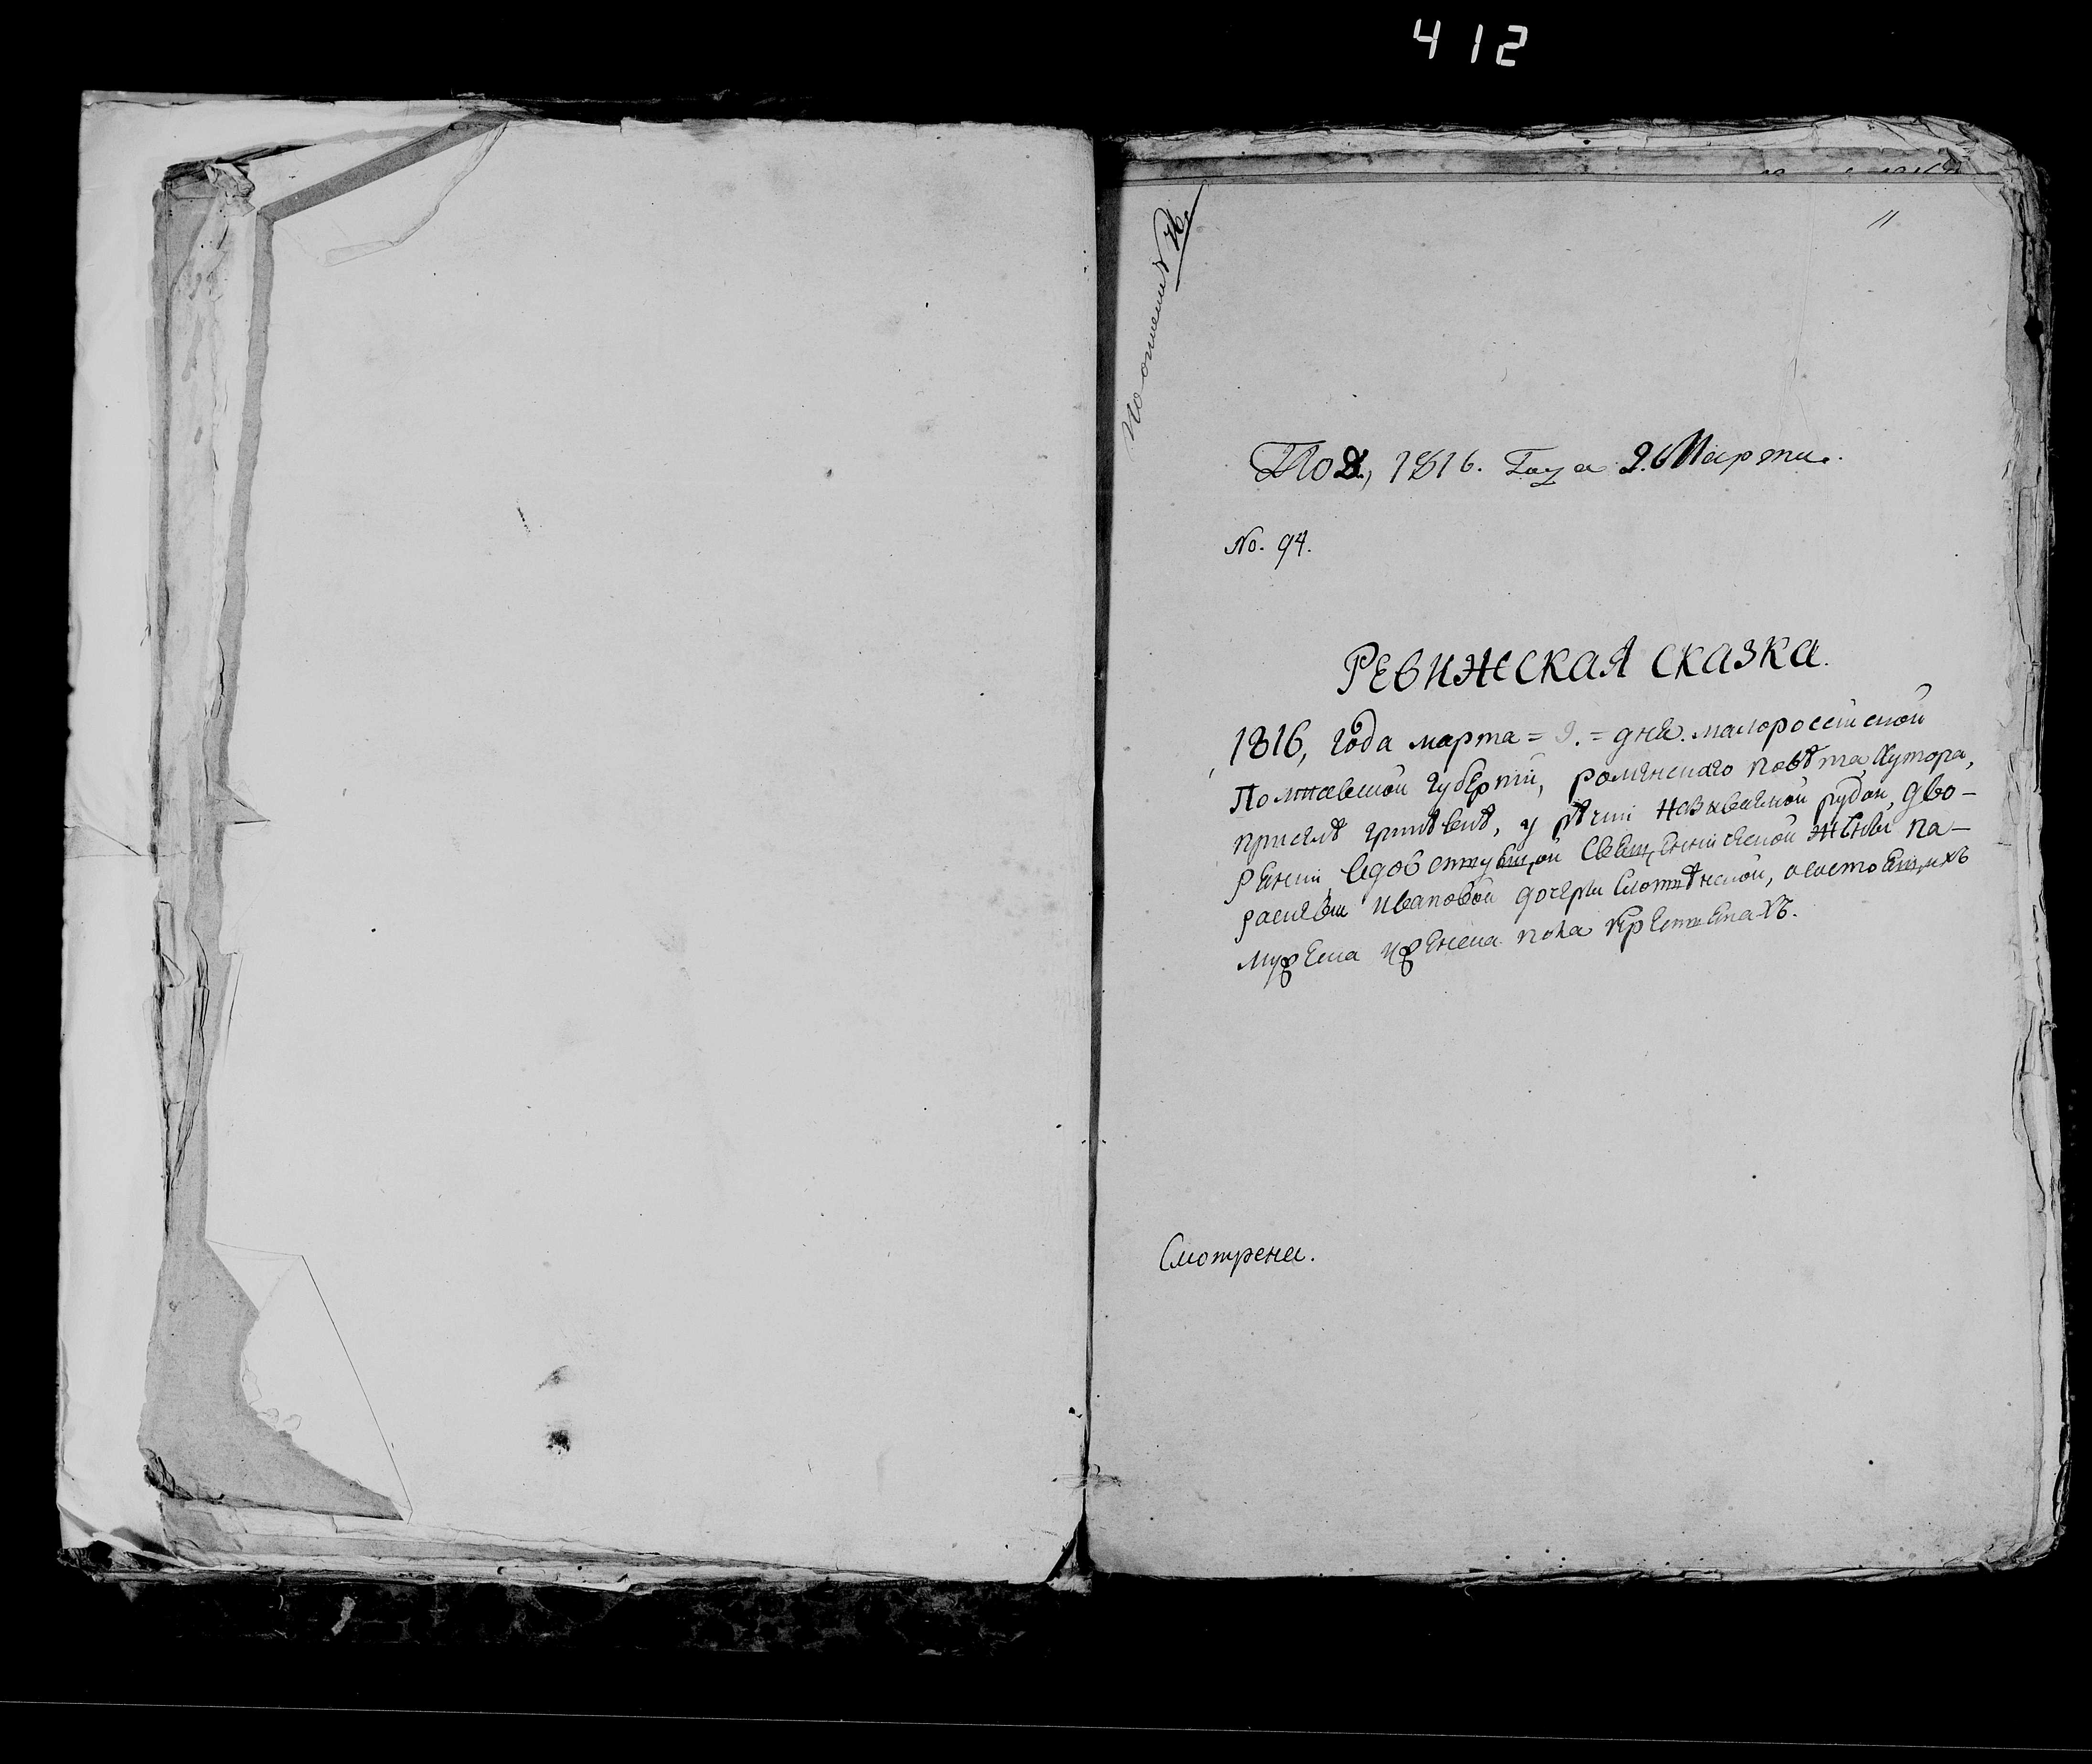 412
11
По описи № 76
Под., 1816. Года 26 Марта.
No. 94.
РЕВИЖСКАЯ СКАЗКА.
1816, года марта = 9. = дня. малоросеiиской
Полтавской губернiи, роменскаго повѣта, Хутора,
присилѣ грицѣвкѣ, у рѣчки називаемой рудои, дво-
рянки вдовствующои священнической жены па-
раскѣвы ивановой дочери Слотвѣнской, осостоящихъ
мужеска иженска пола крестянахъ.
Смотрена.